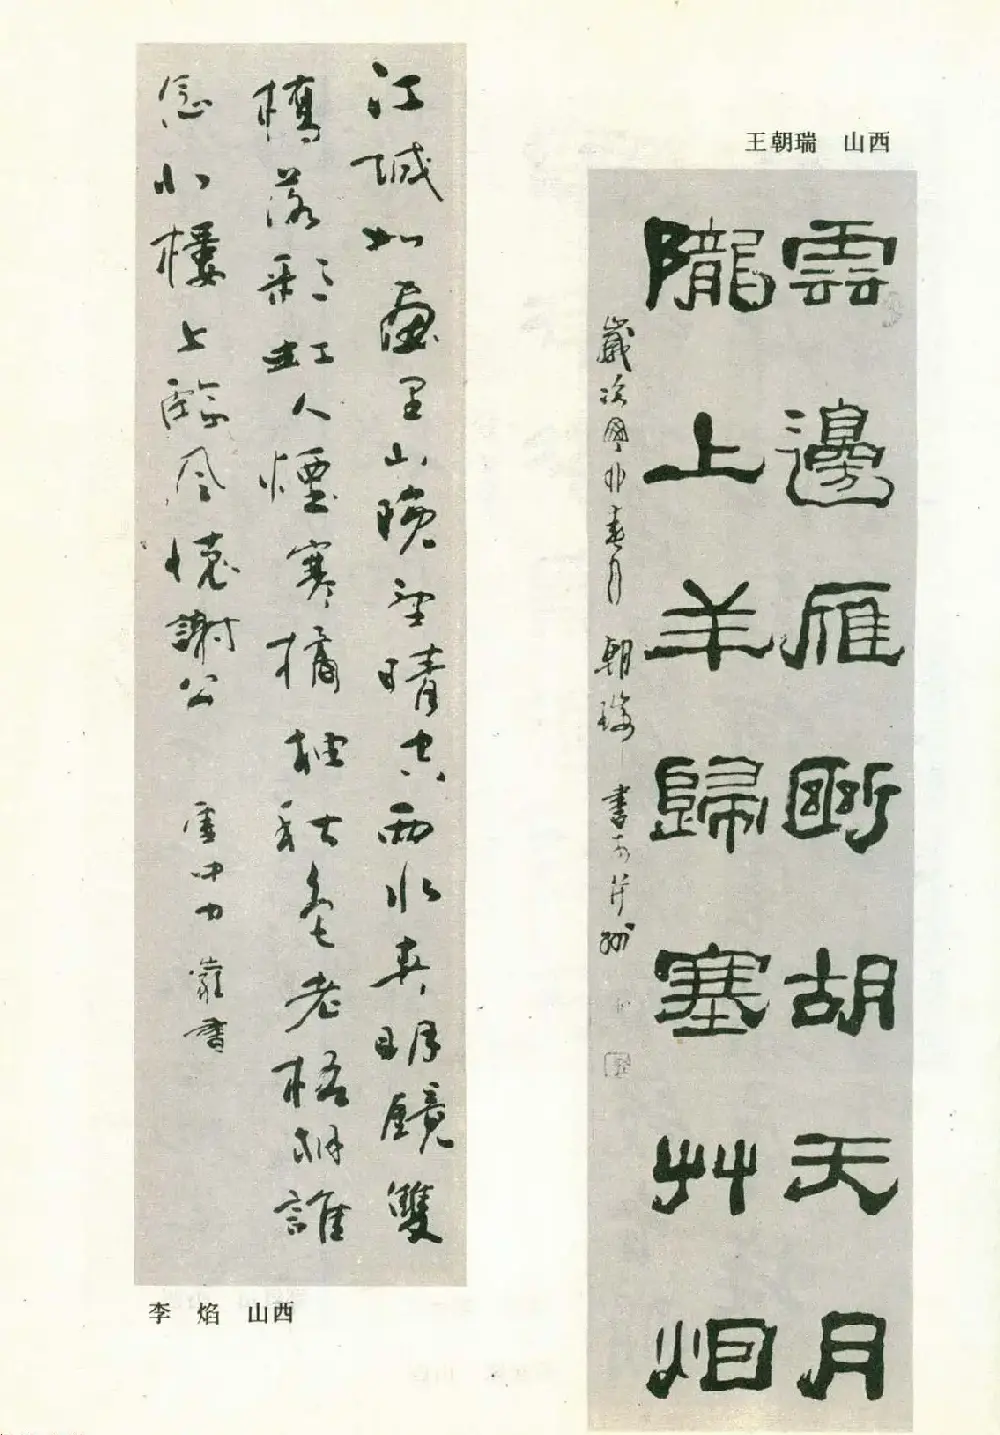 王朝瑞　山西
雲邊雁斷胡天月
隴上羊歸塞艸烟
歲次 丑春月 朝瑞 書於并州
江城如畫里山晚望晴空兩水夾明鏡雙
橋落彩虹人煙寒橘柚秋色老梧桐誰
念北樓上臨風懷謝公 雲中 書
李　焰　山西